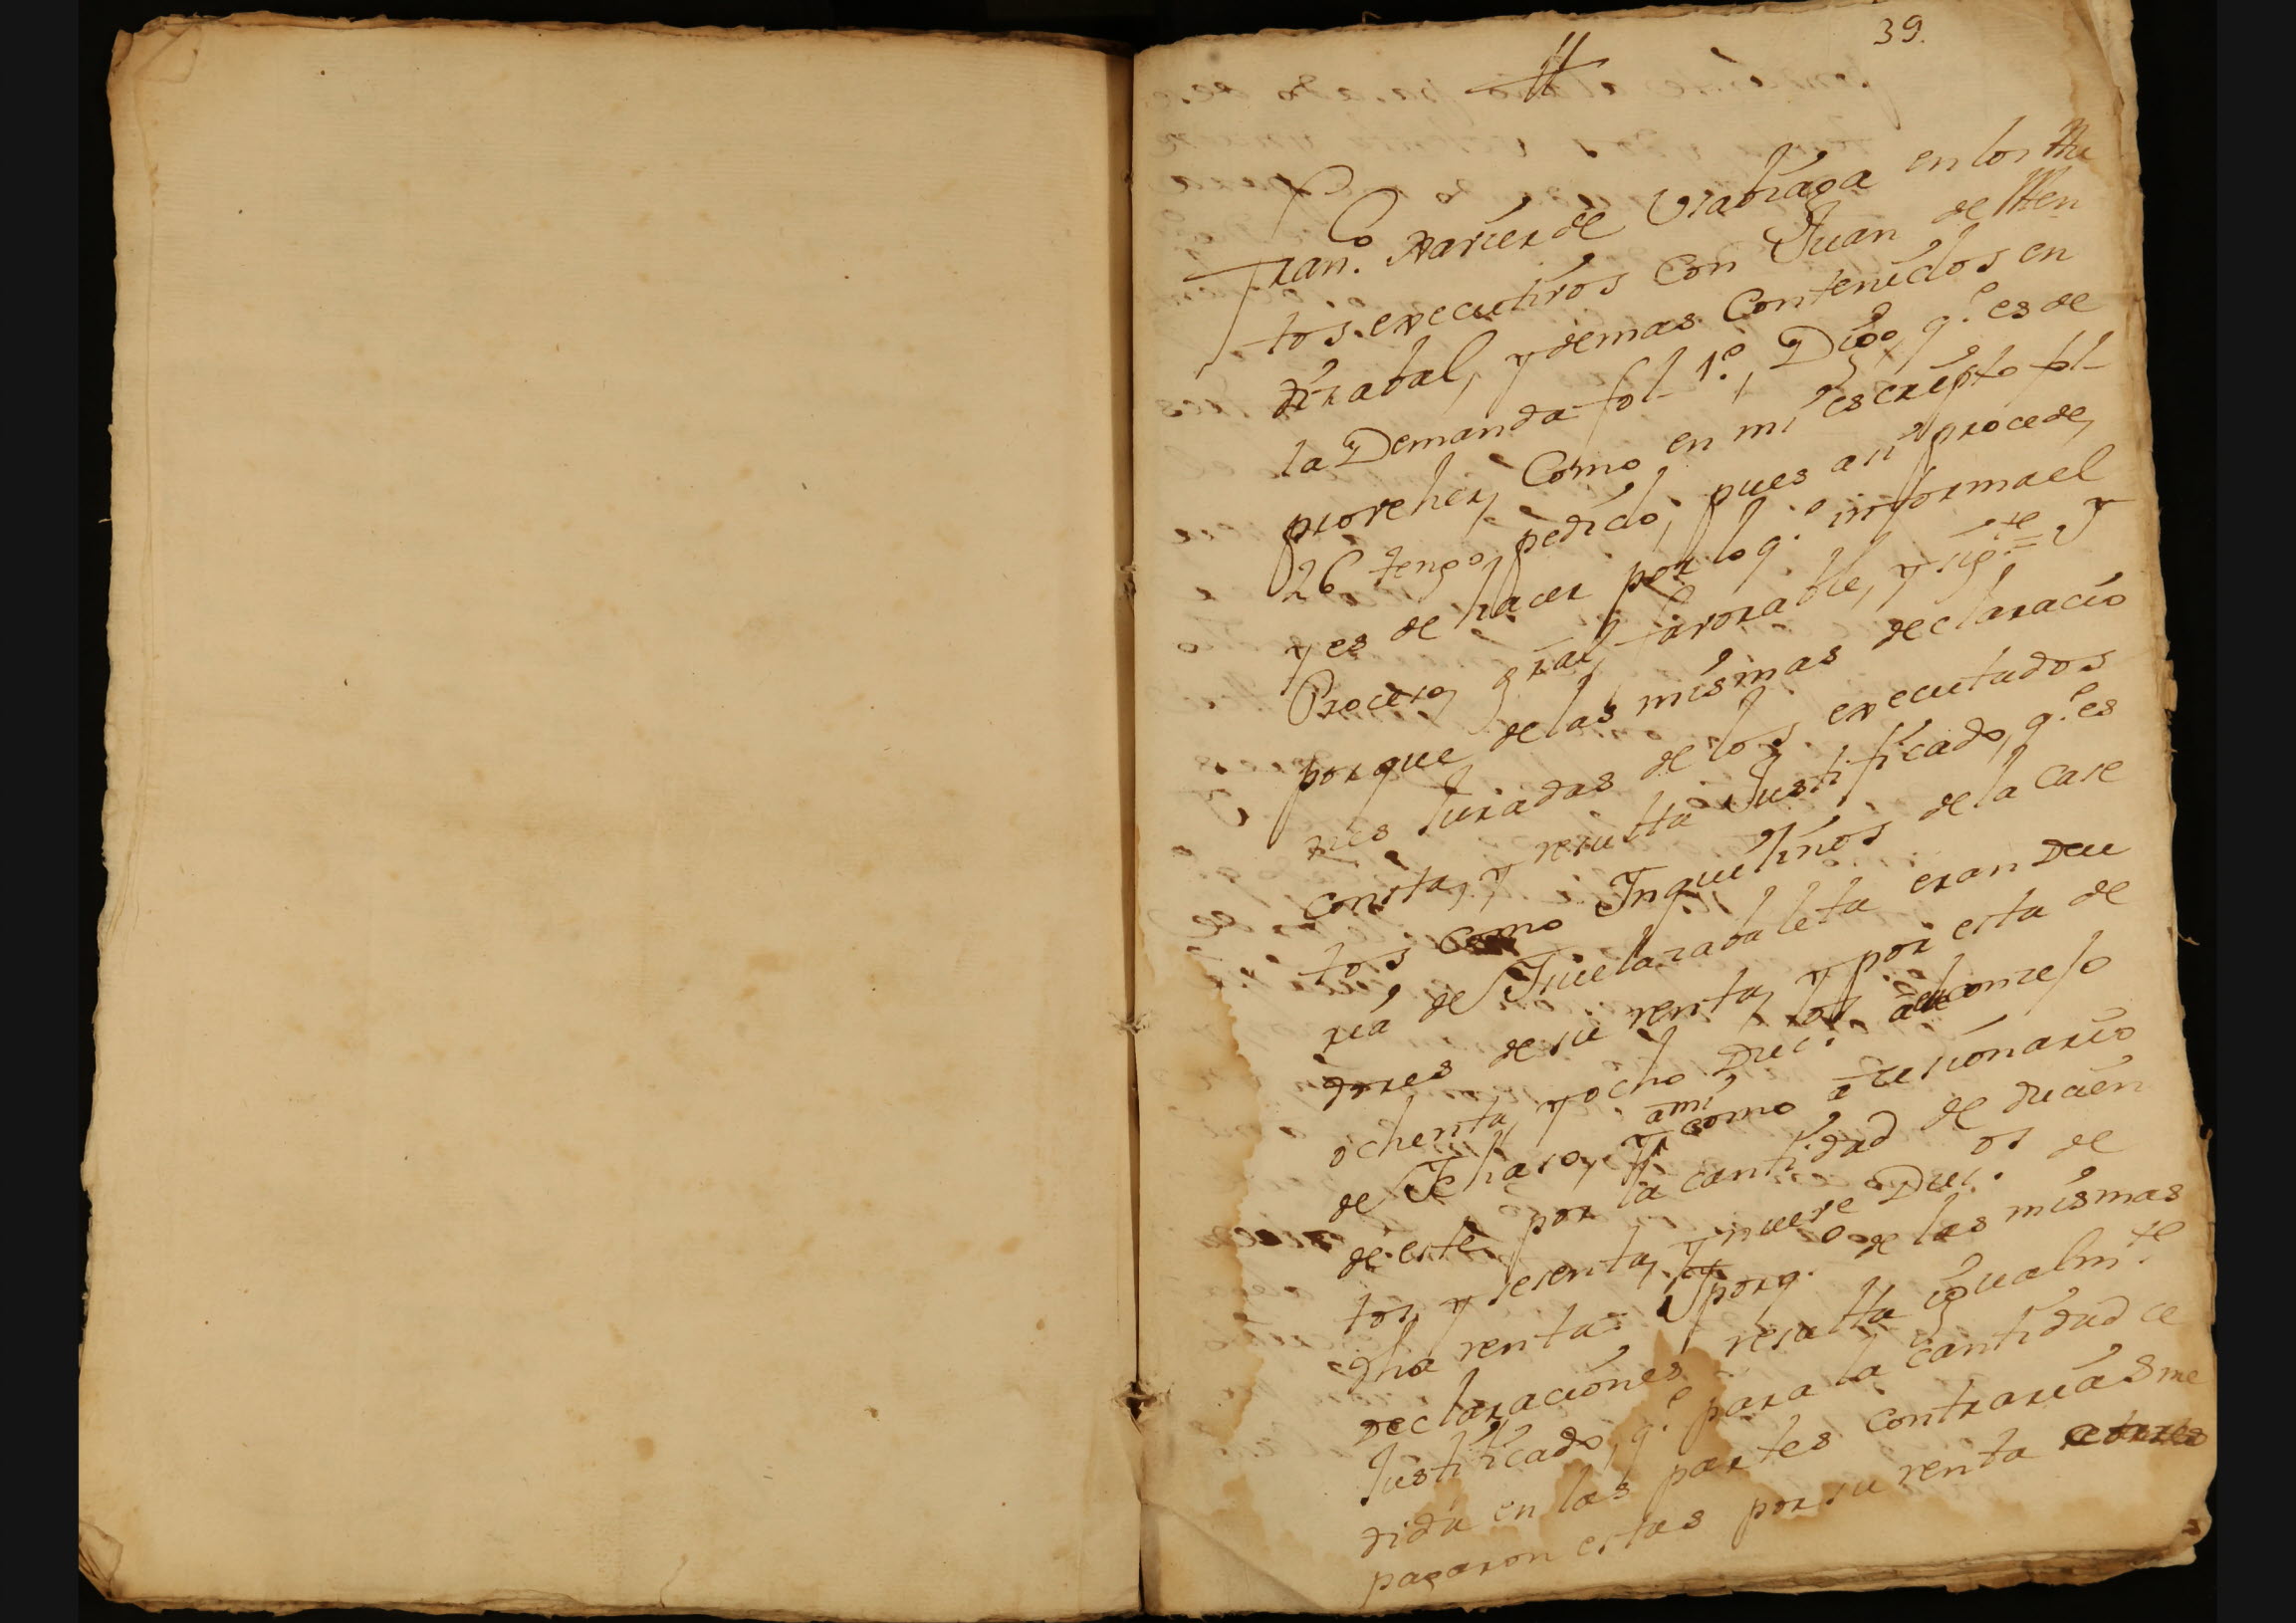 39.
Fran.co Xavier de Vrabiaga en los Au
tos executivos Con Juan de Men
dizabal, y demas Contenidos en
la Demanda fol 1.o, Digo, q.e es de
proveher, Como en mi escripto fol
26 tengo, pedido, pues asi procede,
y es de hacer por lo q.e informa el
Proceso, gral, favorable, y sig.te = Y
porque, de las mismas declaracio
nes Juradas de los executados
consta, y resulta Justificado, q.e es
tos como Inquilinos de la Case
ria de Jruelazabaleta eran Deu
dores de su renta, y por esta de
ochenta, y ocho Duc.os al concejo
de Jchaso, Y a mi como a cesionario
de este, por la cantidad de ducien
tos, y sesenta, Y nueve Duc.os de
dha renta: Y porq.e de las mismas
declaraciones resulta igualm.te
Justificado, q.e para la cantidad ce
dida en las partes contrarias me
pagaron estas por su renta